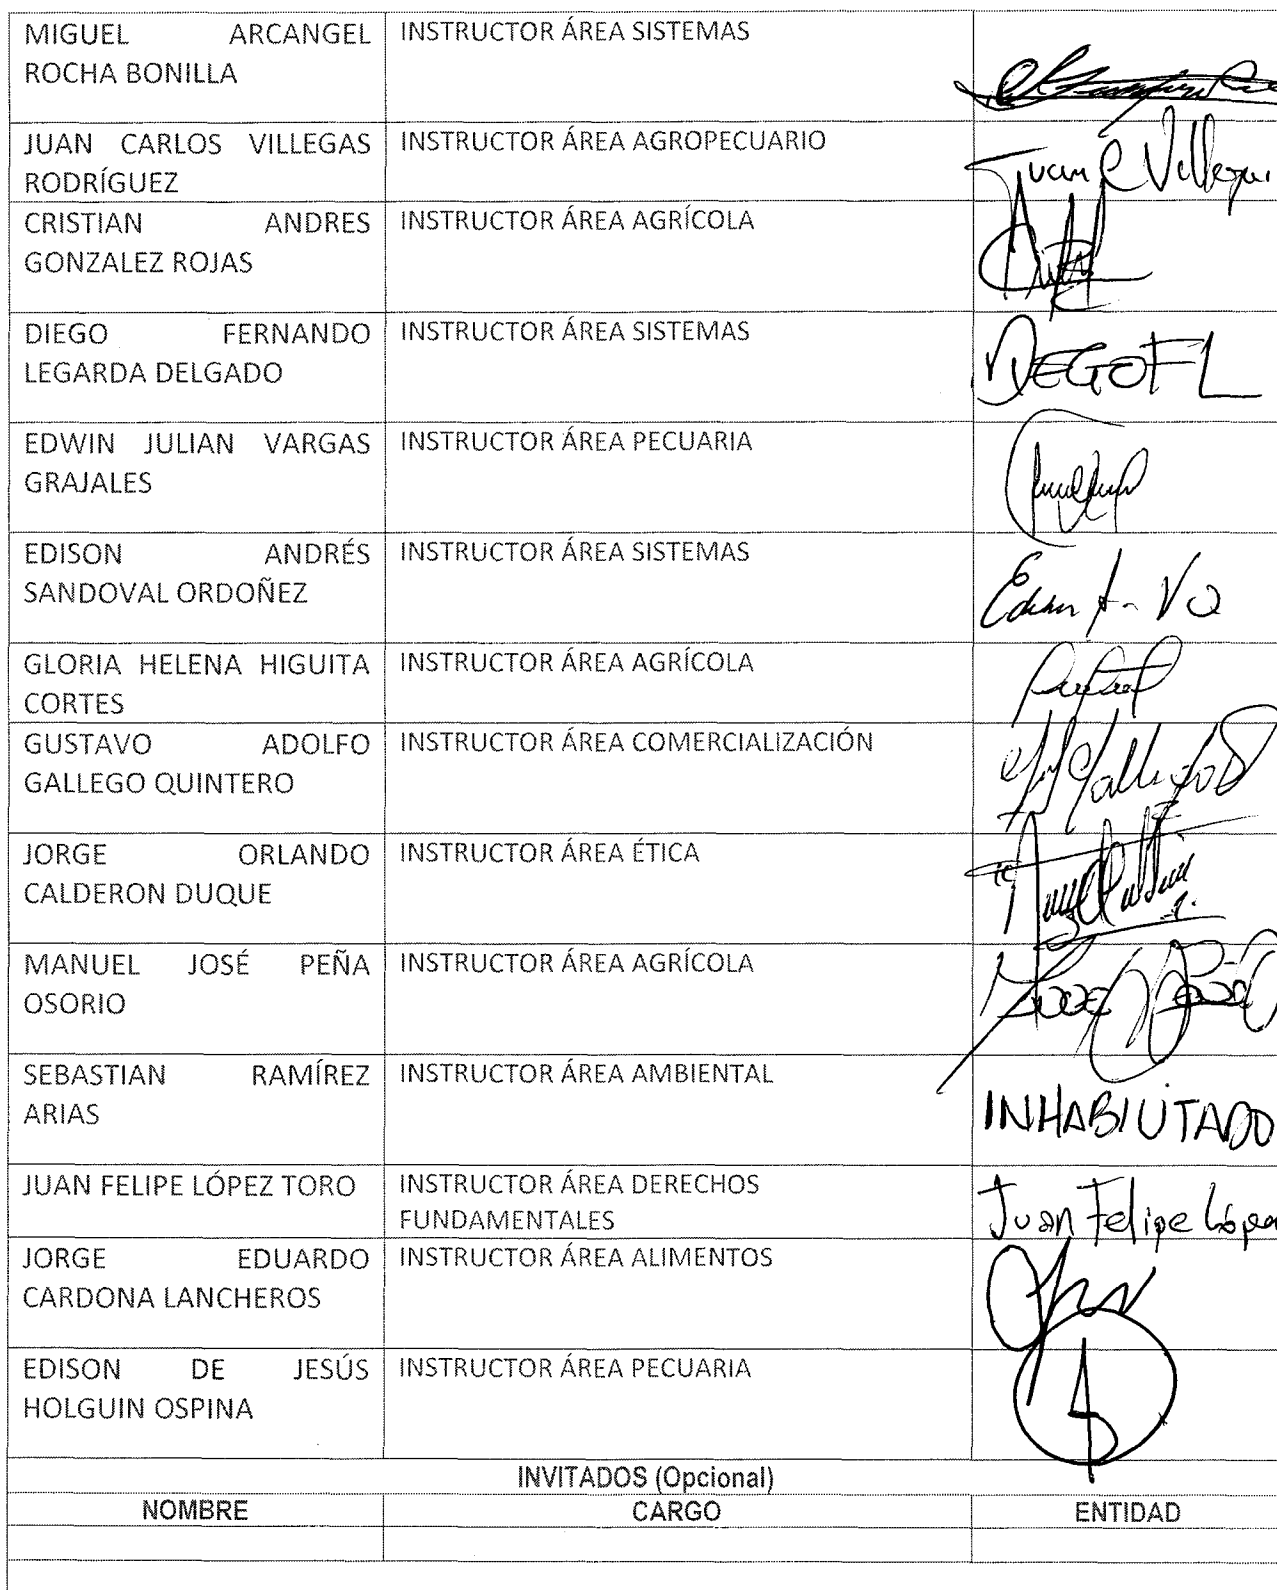 MIGUEL ARCANGEL ROCHA BONILLA
INSTRUCTOR ÁREA SISTEMAS
JUAN CARLOS VILLEGAS RODRÍGUEZ
INSTRUCTOR ÁREA AGROPECUARIO
Juan C Villegas
CRISTIAN ANDRES GONZALEZ ROJAS
INSTRUCTOR ÁREA AGRÍCOLA
DIEGO FERNANDO LEGARDA DELGADO
INSTRUCTOR ÁREA SISTEMAS
DIEGO FL
EDWIN JULIAN VARGAS GRAJALES
INSTRUCTOR ÁREA PECUARIA
EDISON ANDRÉS SANDOVAL ORDOÑEZ
INSTRUCTOR ÁREA SISTEMAS
GLORIA HELENA HIGUITA CORTES
INSTRUCTOR ÁREA AGRÍCOLA
GUSTAVO ADOLFO GALLEGO QUINTERO
INSTRUCTOR ÁREA COMERCIALIZACIÓN
JORGE ORLANDO CALDERON DUQUE
INSTRUCTOR ÁREA ÉTICA
MANUEL JOSÉ PEÑA OSORIO
INSTRUCTOR ÁREA AGRÍCOLA
SEBASTIAN RAMÍREZ ARIAS
INSTRUCTOR ÁREA AMBIENTAL
INHABILITADO
JUAN FELIPE LÓPEZ TORO
INSTRUCTOR ÁREA DERECHOS FUNDAMENTALES
Juan Felipe López
JORGE EDUARDO CARDONA LANCHEROS
INSTRUCTOR ÁREA ALIMENTOS
EDISON DE JESÚS HOLGUIN OSPINA
INSTRUCTOR ÁREA PECUARIA
INVITADOS (Opcional)
NOMBRE CARGO ENTIDAD